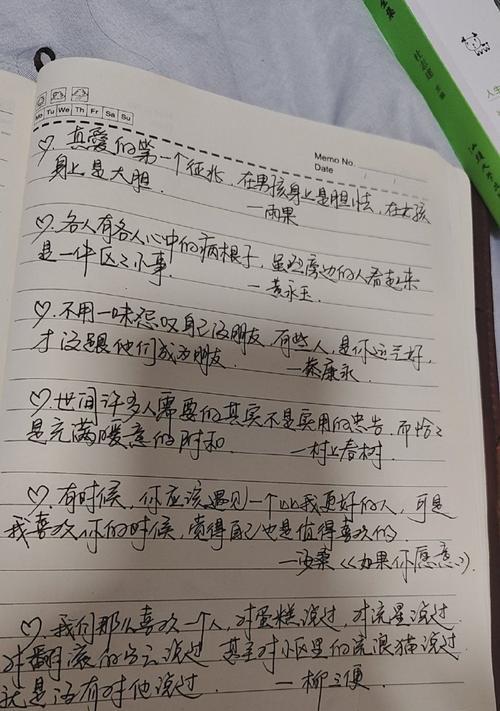 Mo Tu We Th Fr Sa Su
Memo No.
Date / /
真爱的第一个征兆,在男孩身上是胆怯,在女孩
身上是大胆.
—雨果
各人有各人心中的病根子,虽然旁边的人看起来
是一件区区小事.
—黄永玉
不用一味怨叹自己没朋友,有些人,是你运气好,
才没跟他们成为朋友.
—蔡康永
世间许多人需要的其实不是实用的忠告,而恰々
是充满暖意的附和.
—村上春树
有时候,你应该遇见一个比我更好的人,可是
我喜欢你的时候,觉得自己也是值得喜欢的.
《如果你愿意》.
我们那么喜欢一个人,对蛋糕说过,对流星说过
对翻滚的白云说过 甚至对小区里的流浪猫说过
就是没有对他说过.
人生